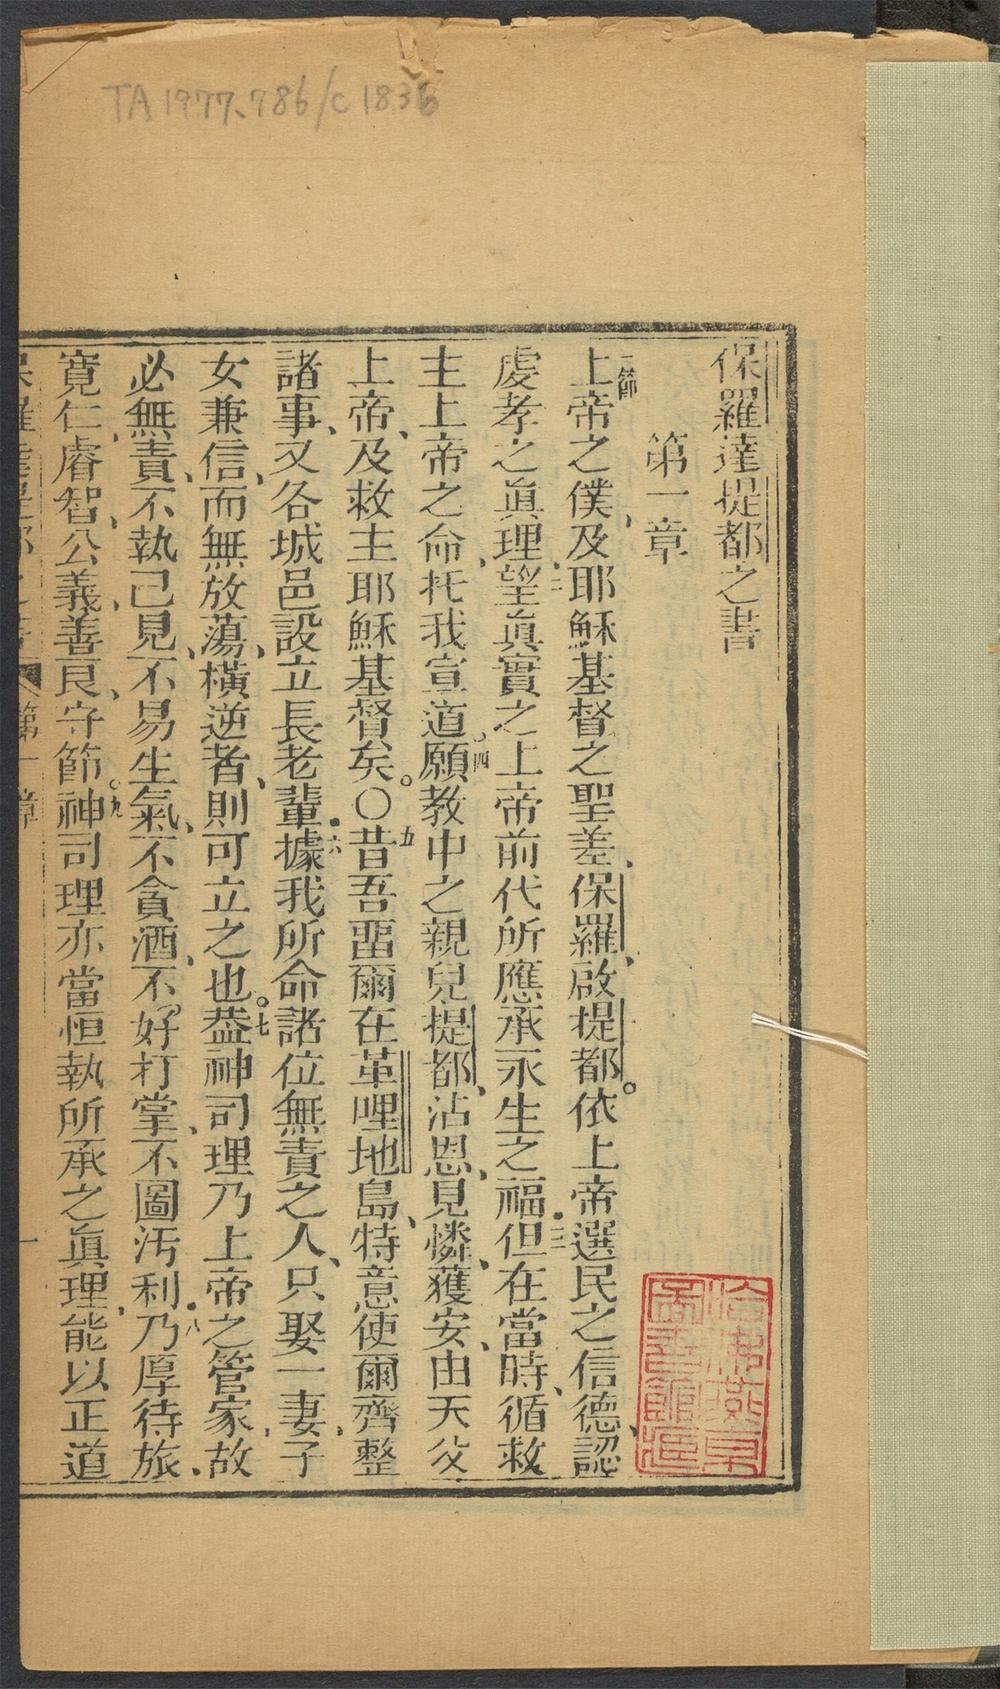 TA 1977.786/C1836
保羅達提都之書
第一章
一節
上帝之僕、及耶穌基督之聖差、保羅、啟提都。依上帝選民之信德、認
虔孝之眞理、二望眞實之上帝前代所應承永生之福、三但在當時、循救
主上帝之命、托我宣道。四願教中之親兒提都、沾恩、見憐、獲安、由天父
上帝、及救主耶穌基督矣。〇五昔吾畱爾在革哩地島、特意使爾齊整
諸事、又各城邑設立長老輩、六據我所命諸位無責之人、只娶一妻、子
女兼信、而無放蕩、橫逆者、則可立之也。七葢神司理乃上帝之管家、故
必無責、不執己見、不易生氣、不貪酒、不好打掌、不圖汚利、八乃厚待旅、
寬仁、睿智、公義、善良、守節。九神司理亦當恒執所承之眞理、能以正道
第一章
一
哈佛燕京
圖書館藏